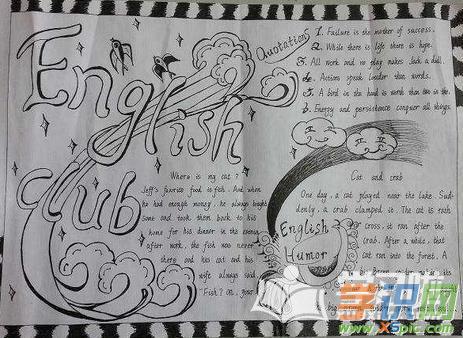 English
Club
Quotations
1. Failure is the mother of success.
2. While there is life there is hope.
3. All work and no play makes Jack a dull.
4. Actions speak louder than words.
5. A bird in the hand is worth than two in the
6. Energy and persistence conquer all things.
Where is my cat?
Jeff's favorite food is fish. And when
he had enough money, he always bought
some and took them back to his
home for his dinner in the evening
after work, the fish was never
there and his cat and his
wife always said,
"Fish?
English
Humor
Cat and crab
One day, a cat played near the lake. Sud-
denly, a crab clamped it. The cat is rush
cross, it ran after the
crab. After a while, that
cat ran into the forest. A
学识网
www.xspic.com